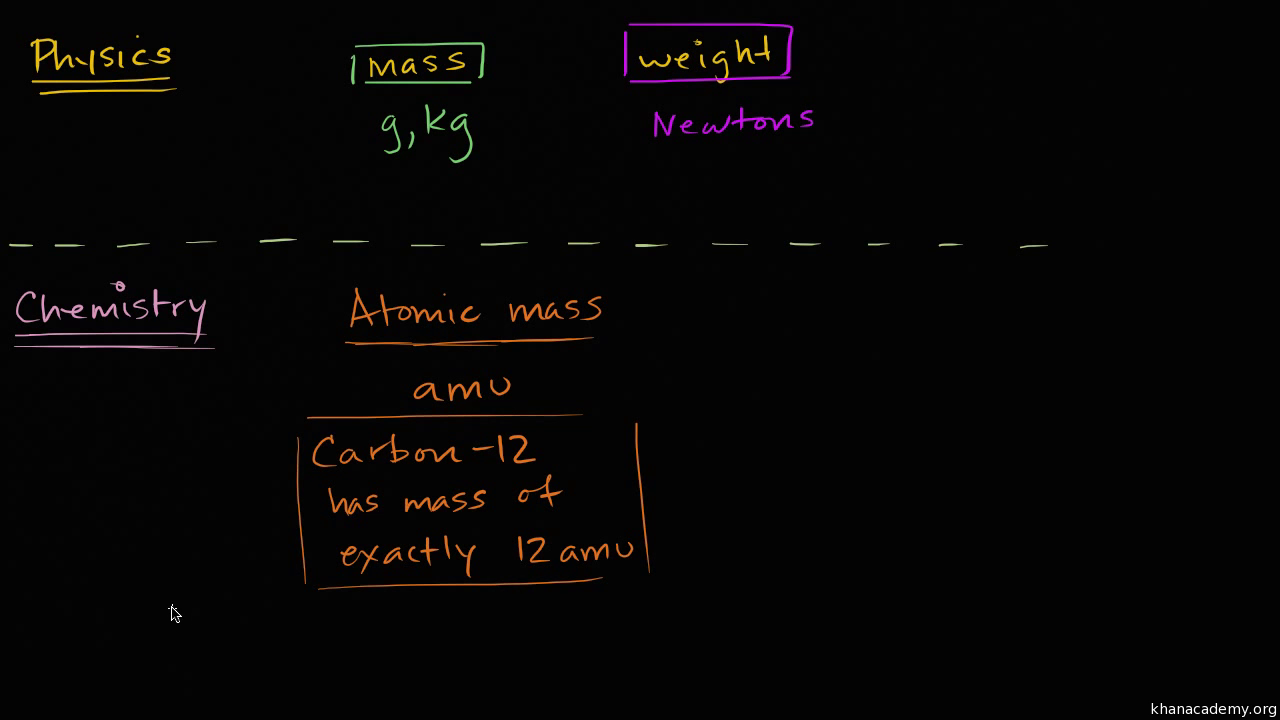 Physics
mass
weight
g, kg
Newtons
Chemistry
Atomic mass
amu
Carbon-12
has mass of
exactly 12 amu
khanacademy.org